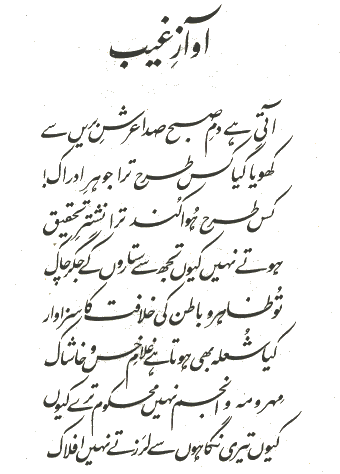 آوازِ غیب
آتی ہے دمِ صبح صدا عرشِ بریں سے
کھویا گیا کس طرح ترا جوہرِ ادراک!
کس طرح ہوا کند ترا نشترِ تحقیق
ہوتے نہیں کیوں تجھ سے ستاروں کے جگر چاک
تو ظاہر و باطن کی خلافت کا سزاوار
کیا شعلہ بھی ہوتا ہے غلامِ خس و خاشاک
مہر و مہ و انجم نہیں محکوم ترے کیوں
کیوں تیری نگاہوں سے لرزتے نہیں افلاک